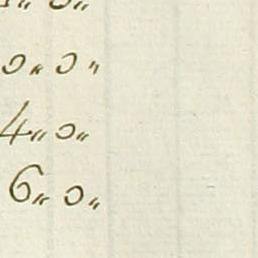 0〃 0〃
4〃 0〃
6〃 0〃